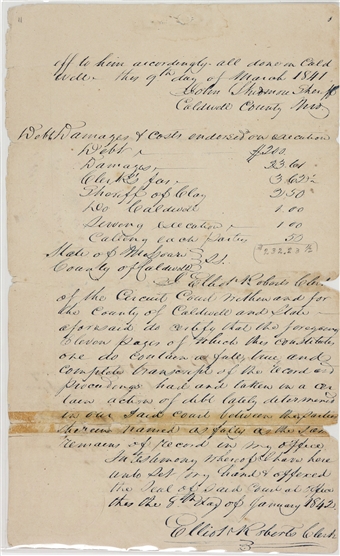 11
off to him accordingly all done in Cald
well this 9th day of March 1841
John Skidmore Sheriff
Caldwell County Mo
Debt, Damages & Costs endorsed on execution
Debt $200
Damages 23.61
Clerks fees
Sheriff of Clay 2.50
Do Caldwell 1.00
Serving execution 1.00
Calling each Parties 50
State of Missouri
County of Caldwell } Sct.
I Elliot Roberts Clerk
of the Circuit Court within and for
the County of Caldwell and State
aforesaid do certify that the foregoing
Eleven pages of which this constitutes
one do contain a full, true, and
complete transcript of the record and
Proceedings had and taken in a cer
tain action of debt lately determined
in our said court between the Parties
therein named as full as the same
remains of record in my office
In testimony whereof I have here
unto set my hand & affixed
the seal of said Court at office
this the 8th day of January 1842
Elliot Roberts Clerk